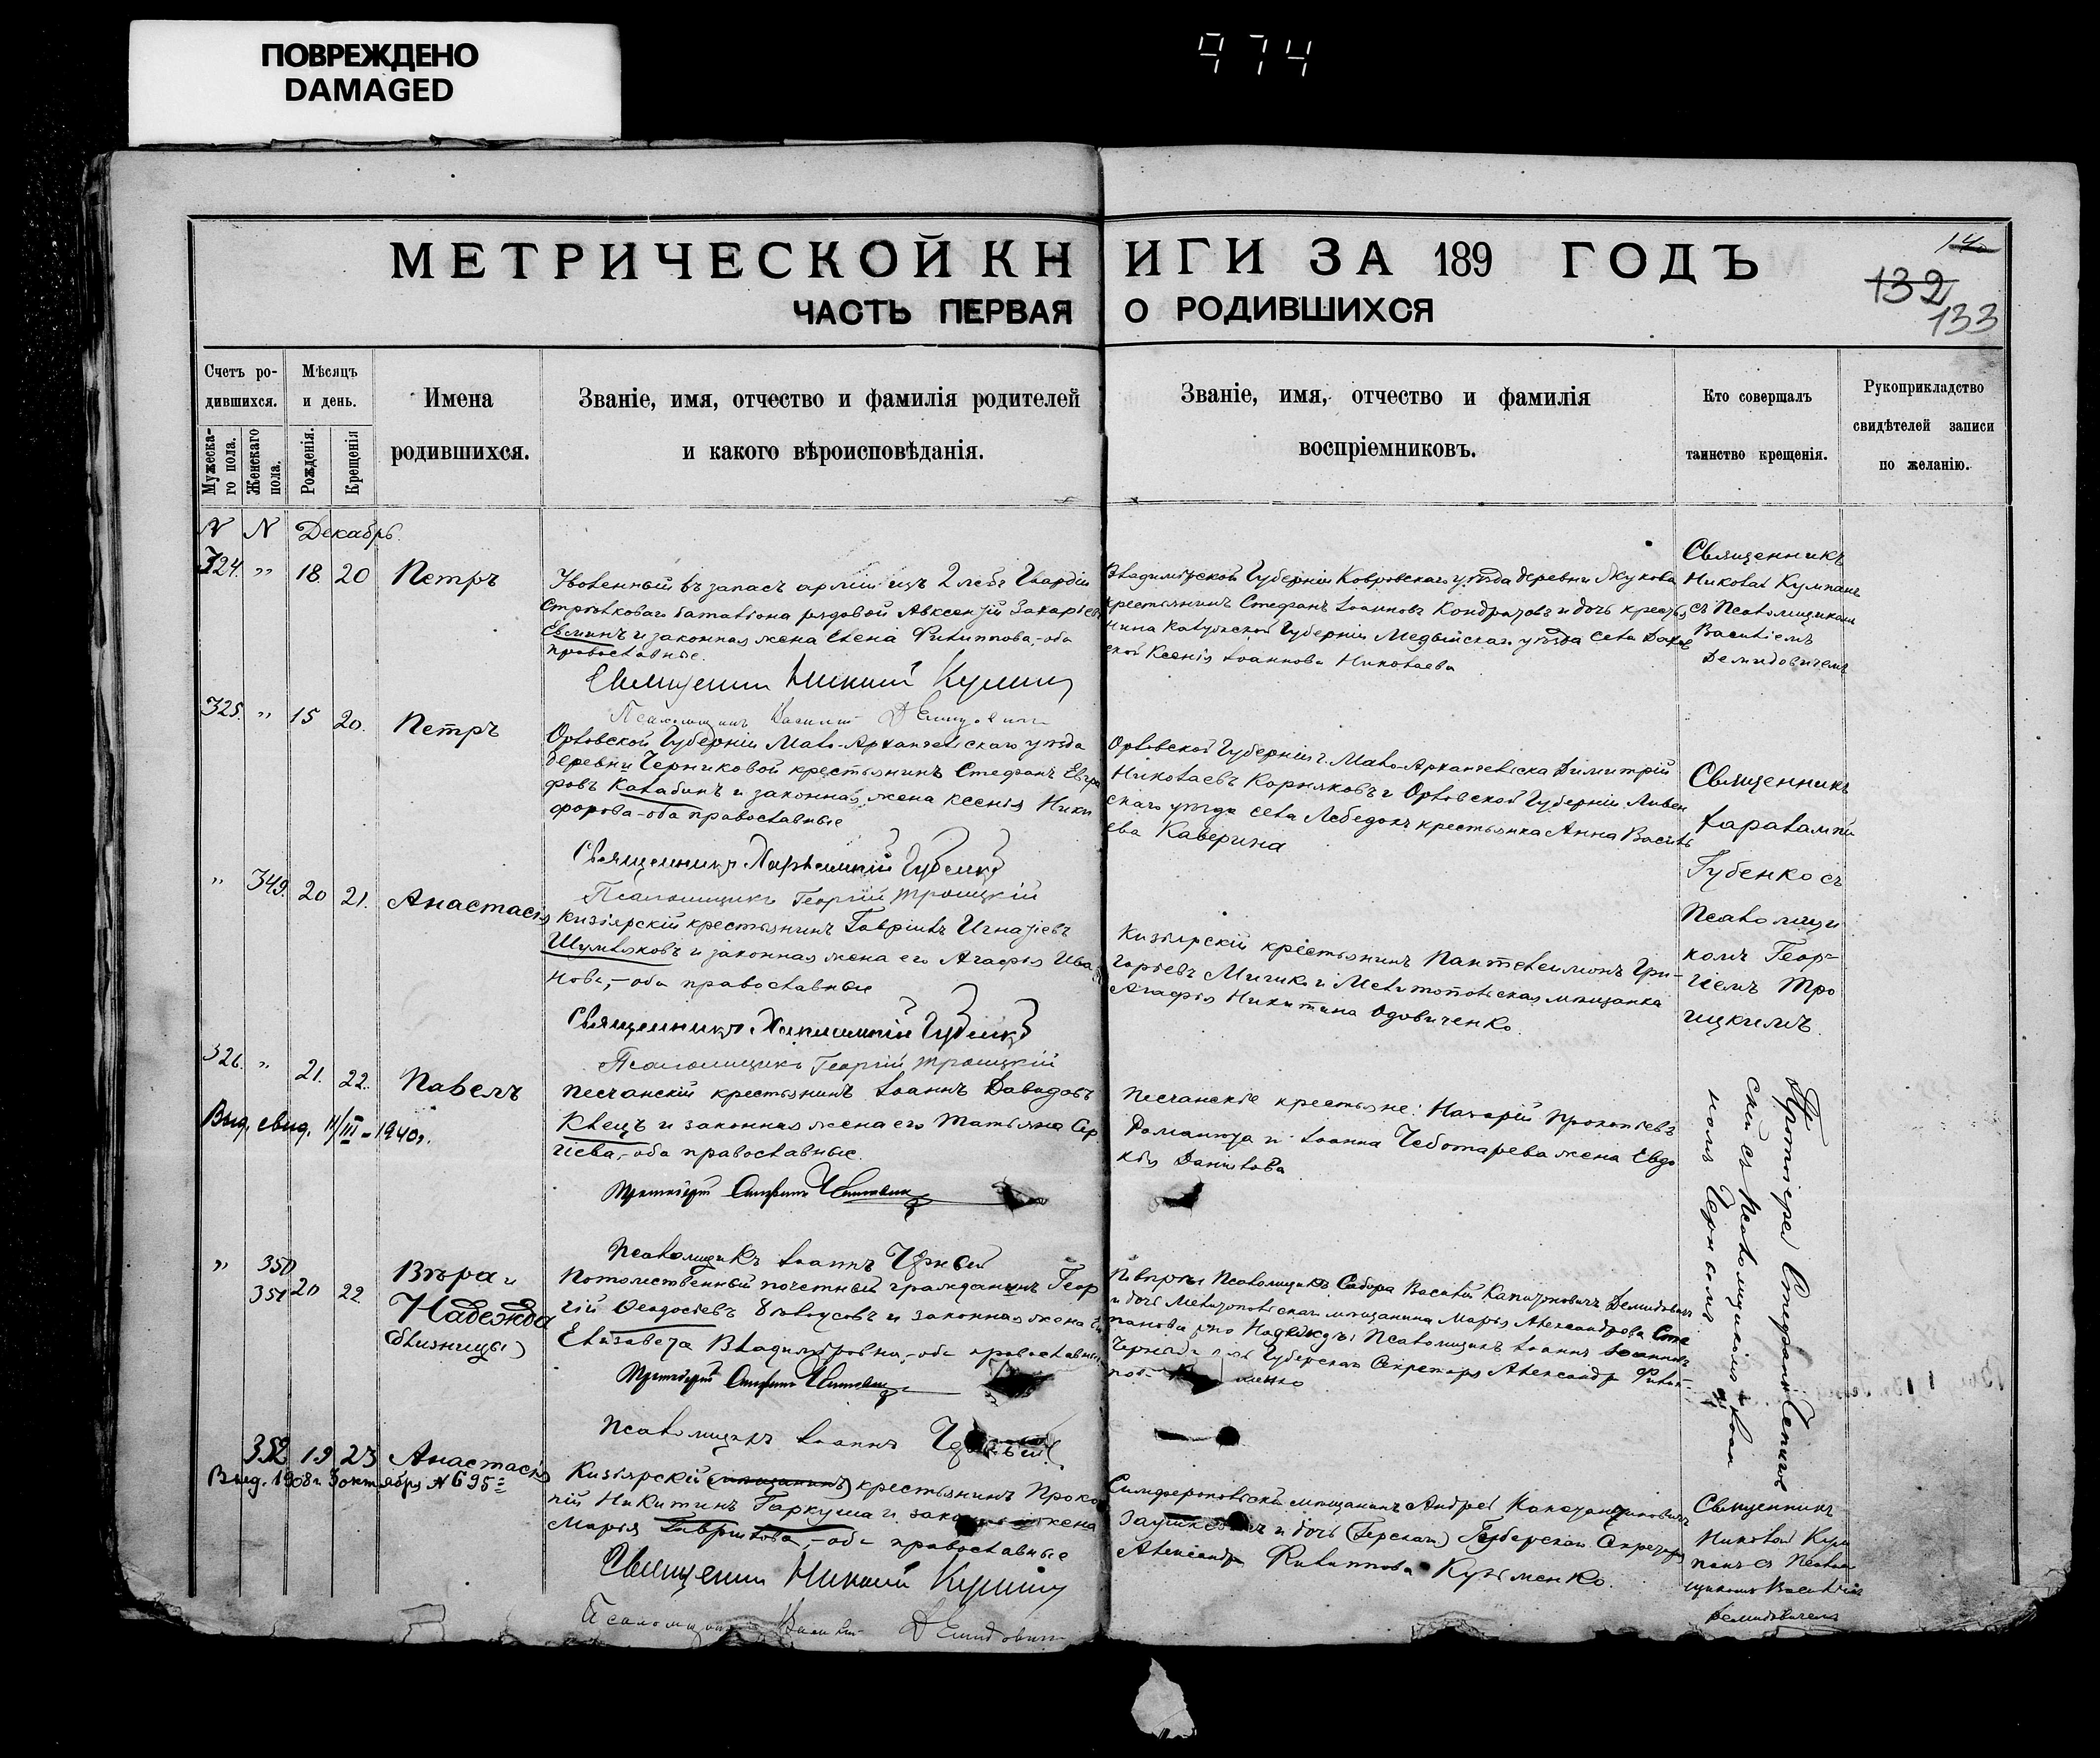 ПОВРЕЖДЕНО
DAMAGED
974
МЕТРИЧЕСКОЙ КНИГИ ЗА 189 ГОДЪ
ЧАСТЬ ПЕРВАЯ О РОДИВШИХСЯ
140
132
133
Счетъ ро-
дившихся.
Мужеска-
го пола.
Женскаго
пола.
Мѣсяцъ
и день.
Рожденія.
Крещенія
Имена
родившихся.
Званіе, имя, отчество и фамилія родителей
и какого вѣроисповѣданія.
Званіе, имя, отчество и фамилія
воспріемниковъ.
Кто совершалъ
таинство крещенія.
Рукоприкладство
свидѣтелей записи
по желанію.
N N Декабрь
324. " 18 20 Петръ
Уволенный въ запасъ арміи изъ 2 лейб Гвардіи
Стрѣлковаго баталіона рядовой Авксентій Захаріевъ
и законная жена Елена Филиппова,-оба
православные.
Священникъ Николай Кумпанъ
Псаломщикъ Василій Демидовичъ
Владимірской Губерніи Ковровскаго уѣзда деревни
крестьянинъ Стефанъ Іоанновъ Кондратовъ и дочь крестья
нина Калужской Губерніи Медынскаго уѣзда села
ской Ксенія Іоаннова Николаева
Священникъ
Николай Кумпанъ
съ Псаломщикомъ
Василіемъ
Демидовичемъ
325. " 15 20. Петръ
Орловской Губерніи Мало-Архангельскаго уѣзда
деревни Черниковой крестьянинъ Стефанъ Евгра
фовъ Калабинъ и законная жена Ксенія Ники
форова-оба православные
Священникъ Харлампій Губенко
Псаломщикъ Георгій Троицкій
Орловской Губерніи г. Мало-Архангельска Димитрій
Николаевъ Корняковъ и Орловской Губерніи Ливен
скаго уѣзда села Лебедокъ крестьянка Анна Василь
ева Каверина
Священникъ
Харалампій
Губенко съ
Псаломщи
комъ Геор-
гіемъ Тро
ицкимъ.
" 349. 20 21. Анастасія
Кизіярскій крестьянинъ Гавріилъ Игнатіевъ
Шумляковъ и законная жена его Агафія Ива
нова,-оба православные
Священникъ Харлампій Губенко
Псаломщикъ Георгій Троицкій
Кизіярскій крестьянинъ Пантелеимонъ Гри-
горіевъ Мичико и Мелитопольская мѣщанка
Агафія Никитина Одовиченко.
326. " 21. 22. Павелъ
Выд. свид. 11/III-1940г.
Песчанскій крестьянинъ Іоаннъ Давидовъ
Квецъ и законная жена его Татьяна Сер
гіева,-оба православные.
Протоіерей Стефанъ
Псаломщикъ Іоаннъ Черный
Песчанскіе крестьяне: Назарій Прокопіевъ
и Іоанна Чеботарева жена Евдо
кія Данилова
Протоіерей Стефанъ
скій съ Псаломщикомъ Іоан
номъ Чернымъ
" 350
351 20 22 Вѣра и
Надежда
(близнецы)
Потомственный почетный гражданинъ Геор
гій Ѳеодосіевъ Бѣлоусовъ и законная жена
Елизавета Владимірова,-оба православные
Протоіерей Стефанъ
Псаломщикъ Іоаннъ Черный
Псаломщикъ Собора Василій Капитоновичъ Демидовичъ
и дочь Мелитопольскаго мѣщанина Марія Александрова Сте
панова, по Надеждѣ: Псаломщикъ Іоаннъ Іоанновъ
Губернскаго Секретаря Александра Филип-
352 19 23 Анастасія
Выд. 1908 г. 3 октября № 695
Кизіярскій (мѣщанинъ) крестьянинъ Проко
пій Никитинъ Гаркуша и законная жена
Марія Гаврилова,-оба православные
Священникъ Николай Кумпанъ
Псаломщикъ Василій Демидовичъ
Симферопольскій мѣщанинъ Андрей Константиновичъ
и дочь Губернскаго Секретаря
Александра Филиппова Кузьменко.
Священникъ
Николай Кум
панъ съ Псалом
щикомъ Василіемъ
Демидовичемъ